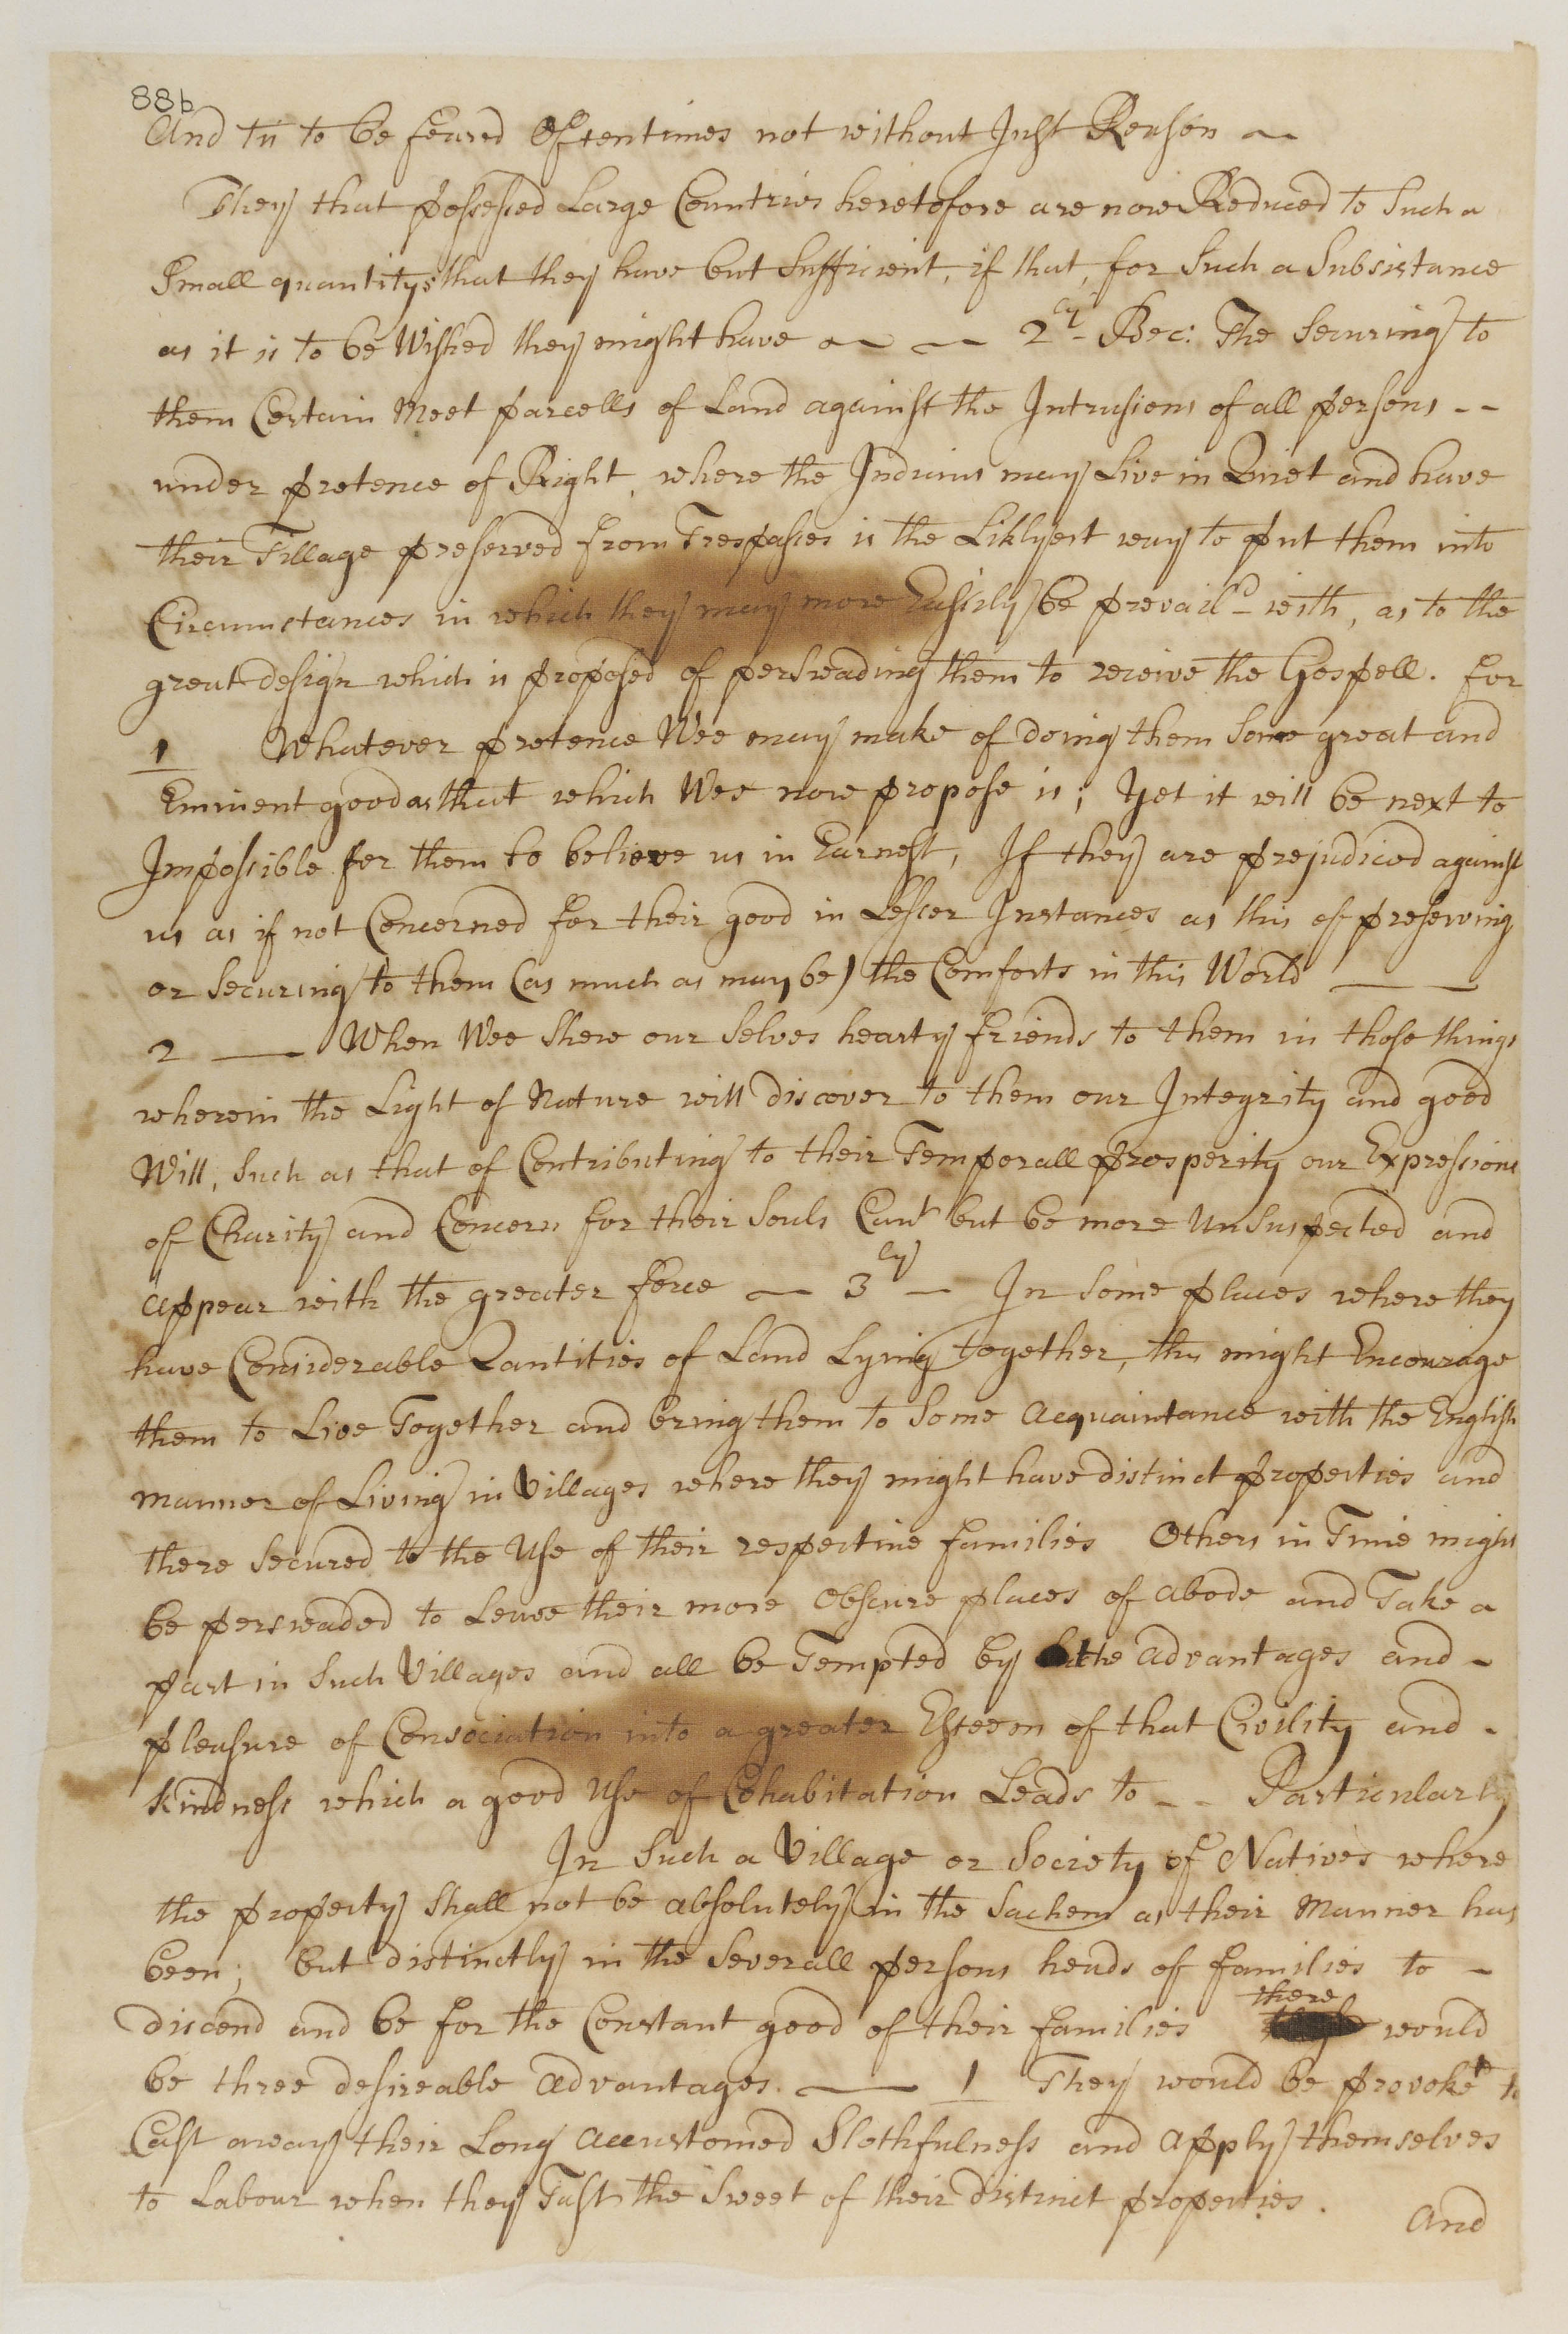 88b
And tis to be feared Oftentimes not without Just Reason ~
They that possessed Large Countries heretofore are now Reduced to Such a
Small quantitys that they have but Sufficient, if that, for Such a Subsistance
as it is to be Wished they might have ~ ~ 2ly - Bec: The Securing to
them Certain Meet parcells of Land against the Intrusions of all persons - -
under pretence of Right, where the Indians may Live in Quiet and have
their Tillage preserved from Trespasses is the Liklyest way to put them into
Circumstances in which they may more Easily be prevaild - with, as to the
great design which is proposed of perswading them to receive the Gospell. for
1 Whatever pretence Wee may make of doing them Some great and
Eminent good as that which Wee now propose is; Yet it will be next to
Impossible for them to believe us in Earnest, If they are prejudiced against
us as if not Concerned for their good in Lesser Instances as this of preserving
or Securing to them (as much as may be) the Comforts in this World ——
2 —— When Wee Shew our Selves hearty friends to them in those things
wherein the Light of Nature will discover to them our Integrity and good
Will, Such as that of Contributing to their Temporall prosperity our Expressions
of Charity and Concern for their Souls Cant but be more UnSuspected and
appear with the greater force — 3ly — In Some places where they
have Considerable Qantities of Land Lying together, this might Encourage
them to Live Together and bring them to Some Acquaintance with the English
manner of Living in Villages where they might have distinct properties and
there Secured to the Use of their respective families Others in Time might
be perswaded to Leave their more Obscure places of abode and Take a
part in Such Villages and all be Tempted by the advantages and -
pleasure of Consociation into a greater Esteem of that Civility and -
kindness which a good Use of Cohabitation Leads to - - Particularly
In Such a Village or Society of Natives where
the property Shall not be absolutely in the Sachem as their Manner has
been; but distinctly in the Severall persons heads of families to -
discend and be for the Constant good of their families there would
be three desireable advantages. —— 1 They would be provokt to
Cast away their Long accustomed Slothfulness and apply themselves
to Labour when they Tast the Sweet of their distinct properties.
and